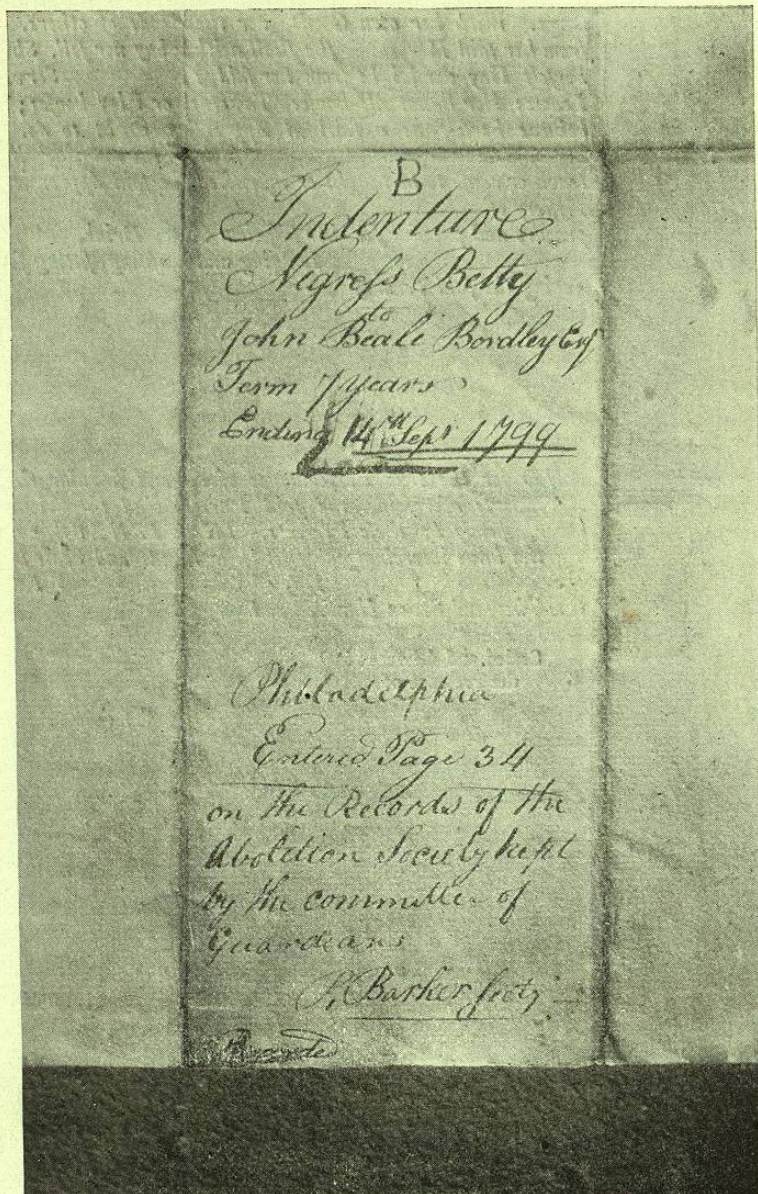 B
Indenture
Negress Betty
to
John Beale Bordley Esq
Term 7 years
Ending 14th Sepr 1799
Philadelphia
Entered Page 34
on the Records of the
Abolition Society kept
by the committee of
Guardians
Barker Secty